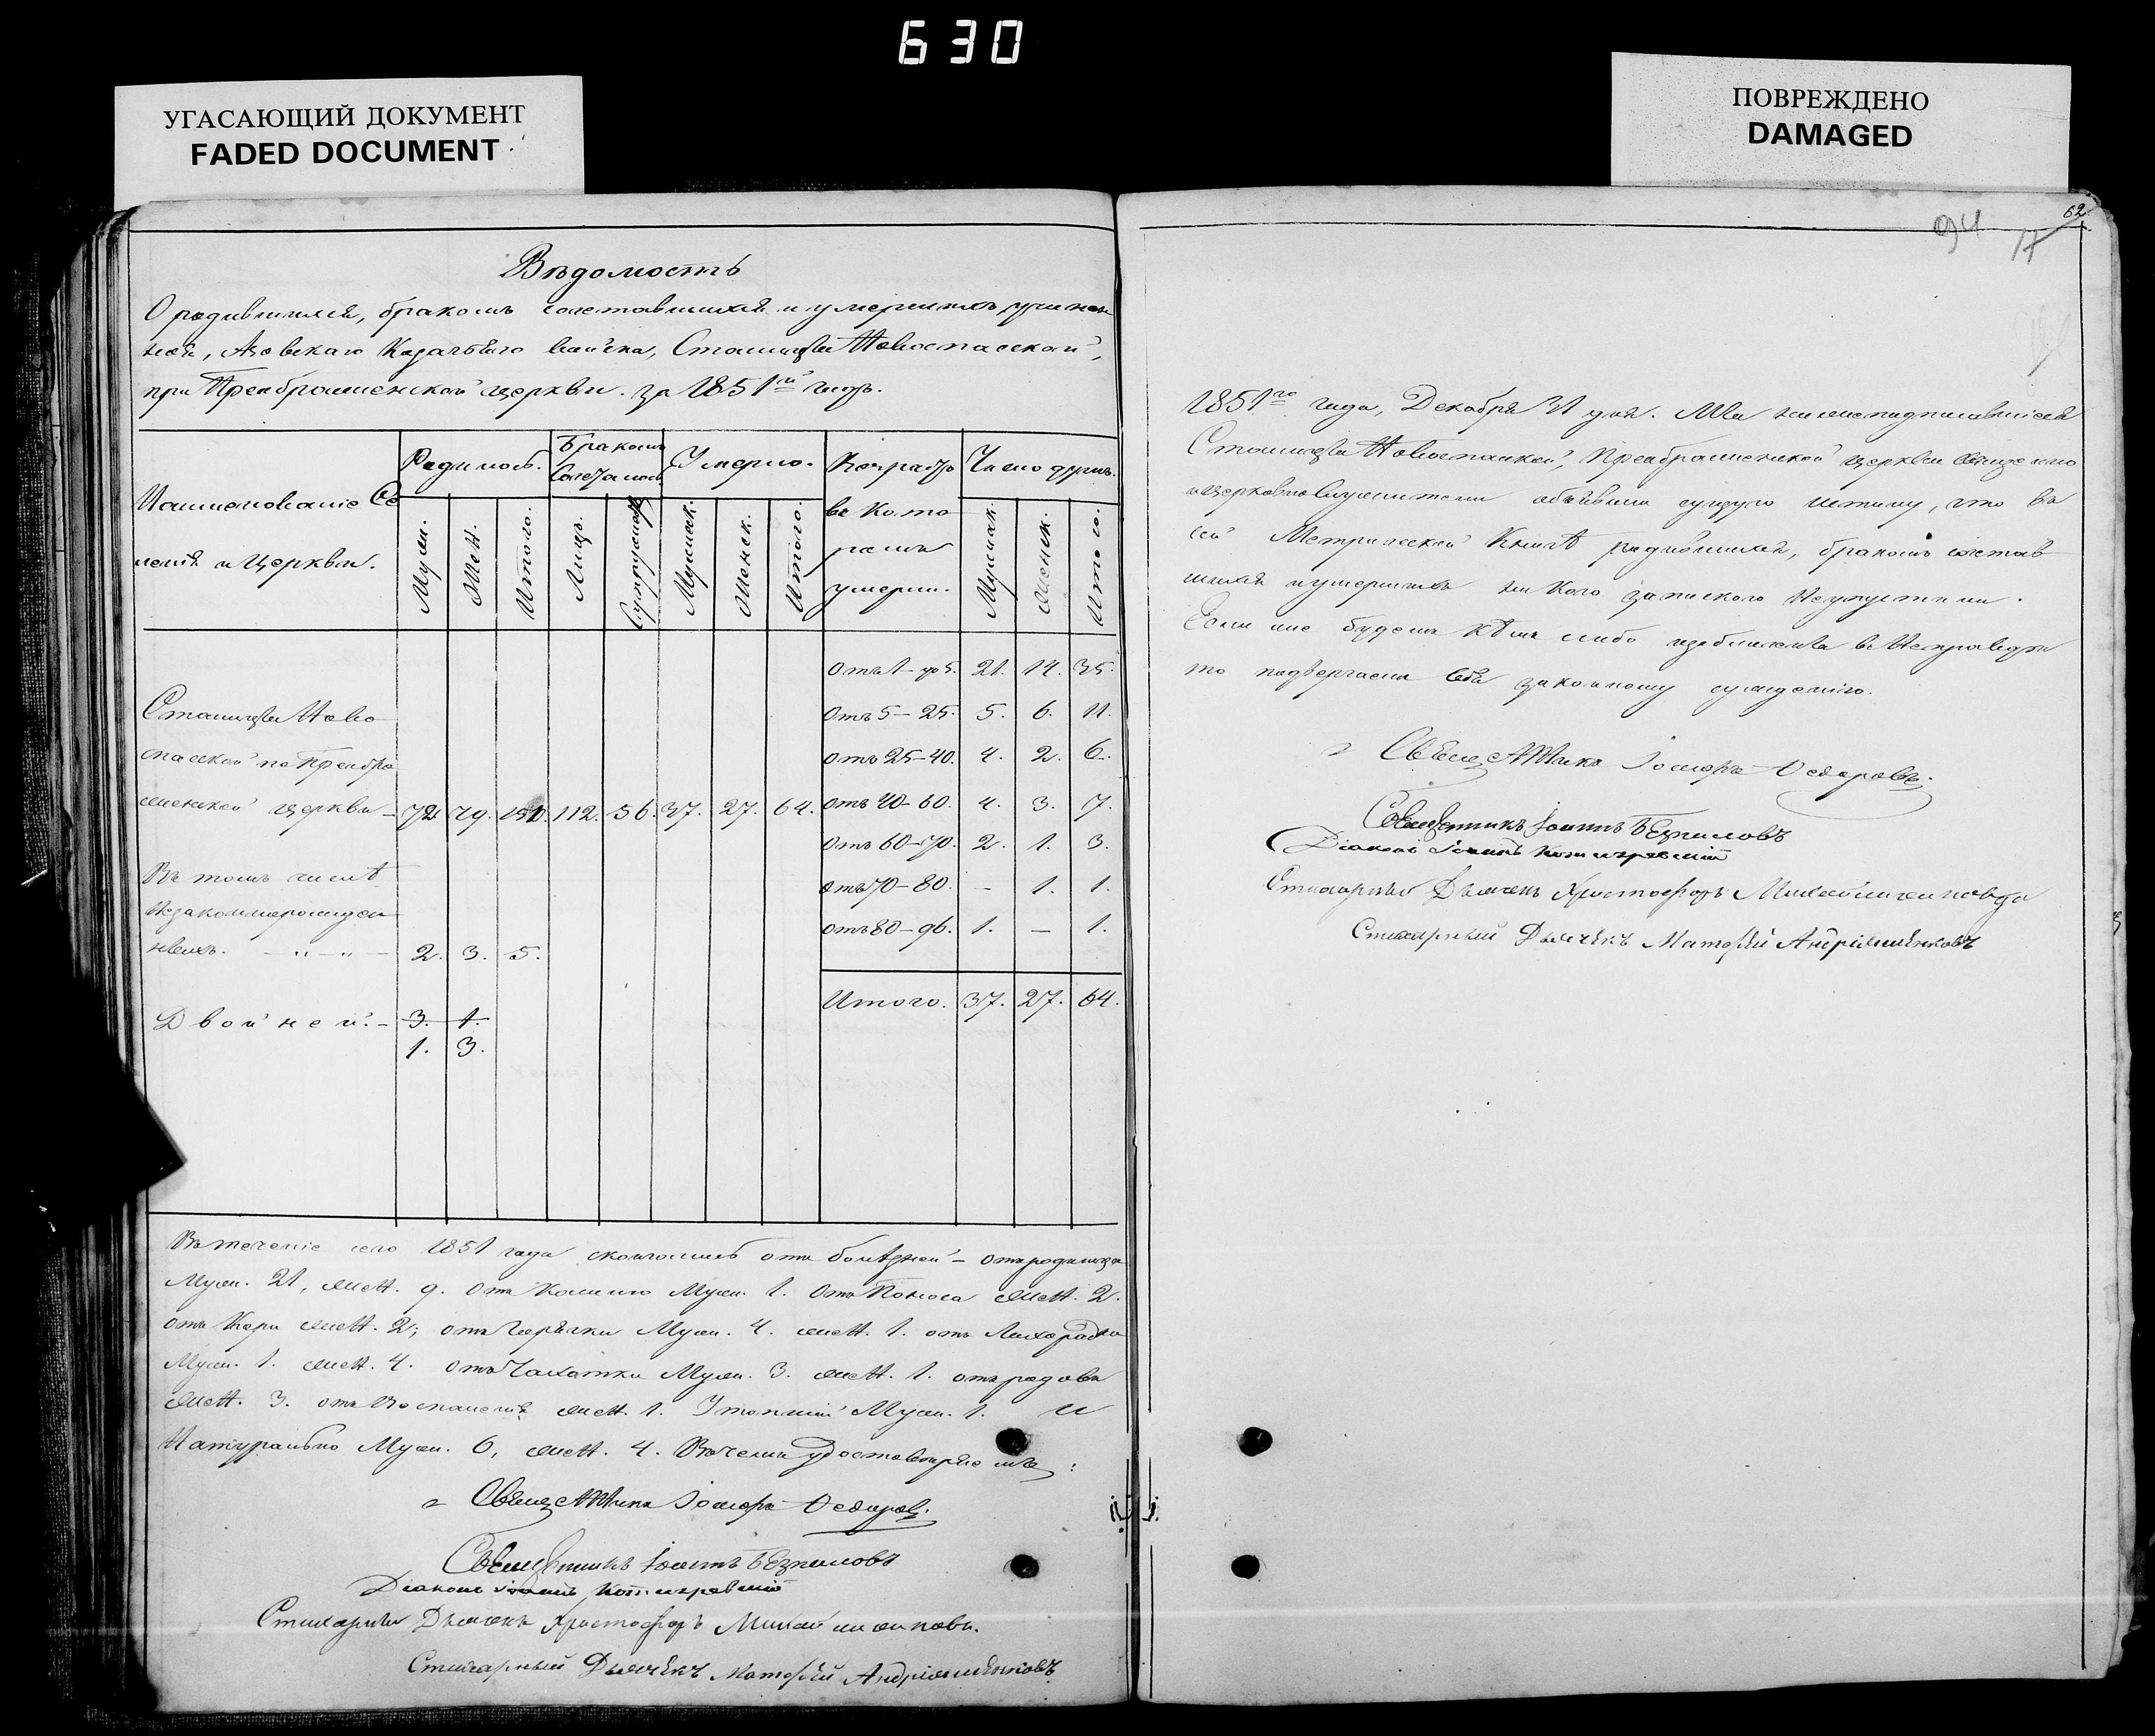 630
УГАСАЮЩИЙ ДОКУМЕНТ
FADED DOCUMENT
ПОВРЕЖДЕНО
DAMAGED
Вѣдомость
О родившихся, бракомъ сочетавшихся и умершихъ, учинен
ная, Азовскаго Казачьяго войска, Станицы Новоспасской,
при Преображенской церкви. за 1851й годъ.
Наименованіе Се
ленія и Церкви.
Родилось.
Муж.
Жен.
Итого.
Бракомъ
Сочеталось
Лицъ.
Супружествъ
Умерло.
Мужеск.
Женск.
Итого.
въ кото
рыхъ
умерли.
Число душъ.
Мужеск.
Женск.
Итого.
Отъ 1 - до 5. 21. 14. 35.
Отъ 5 - 25. 5. 6. 11.
отъ 25-40. 4. 2. 6.
отъ 40-60. 4. 3. 7.
Отъ 60-70. 2. 1. 3.
отъ 70-80. - 1. 1.
отъ 80-96. 1. - 1.
Итого. 37. 27. 64.
Станицы Ново
спасской по Преобра
женской церкви - 72 79. 151. 112. 56. 37. 27. 64.
Въ томъ числѣ
незаконнорожден
ныхъ. - „ - „ - 2. 3. 5.
Двойней. - 3. 1.
1. 3.
Въ теченіе сего 1851 года скончались отъ болѣзней - отъ родимца
Муж. 21, жен. 9. Отъ Кашлю Муж. 1. Отъ Поноса жен. 2.
отъ Кори жен. 2; отъ Горячки Муж. 4. жен. 1. отъ Лихорадки
Муж. 1. жен. 4. отъ Чахотки Муж. 3. жен. 1. отъ родовъ
жен. 3. отъ Воспаленія жен. 1. Утопшій Муж. 1. и
Натурально Муж. 6, жен. 4. Въ чемъ удостовѣряемъ:
Священникъ Федоровъ.
Священникъ Іоаннъ
Діаконъ Іоаннъ
Стихарный Дьячекъ Христофоръ
Стихарный Дьячекъ Матфѣй Андріяшенковъ.
62
94
17
1851го года, Декабря 31 дня. Мы нижеподписавшіеся
Станицы Новоспаской, Преображенской церкви священно
и церковнослужители объявили сущую истину, что въ
сей Метрической Книгѣ родившихся, бракомъ сочетав
шихся и умершихъ ни кого запискою неупустили.
Если же будемъ кѣмъ либо изобличены въ неправедли
то подвергаемъ себя законному сужденію.
Священникъ Федоровъ.
Священникъ Іоаннъ
Діаконъ Іоаннъ
Стихарный Дьячекъ Христофоръ
Стихарный Дьячекъ Матфѣй Андріяшенковъ